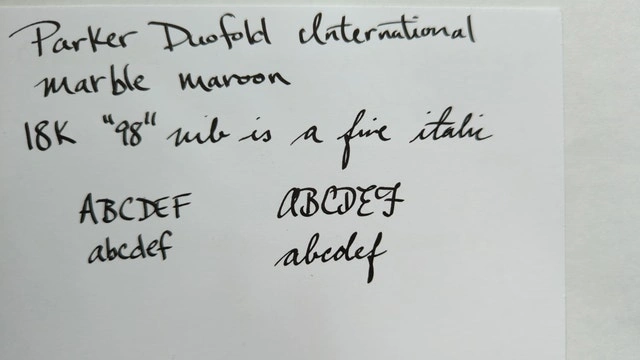 Parker Duofold International
marble maroon
18K "98" nib is a fine italic
ABCDEF ABCDEF
abcdef abcdef